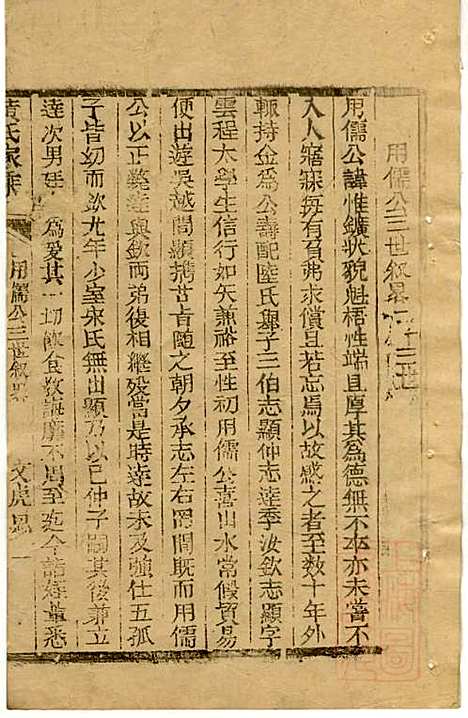 用儒公三世叙畧
用儒公諱惟鑛狀貌魁梧性端且厚其為德無不卒亦未嘗不
入人寤寐每有貧弗求償且若忘焉以故感之者至数十年外
輒持金為公壽配陸氏舉子三伯志顯仲志逵季汝欽志顯字
雲程太學生信行如矢兼裕至性初用儒公喜山水常假貿易
便出遊吳越間顯携甘旨随之朝夕承志左右罔間既而用儒
公以正斃逵與欽兩弟後相繼殁當是時逵故未及強仕五孤
子皆幼而欽尤年少室宋氏無出顯乃以已仲子嗣其後兼立
逵次男廷 為愛其一切飲食教誨靡不周至迄今諸姪輩悉
黄氏家乘 用儒公三世叙畧 一